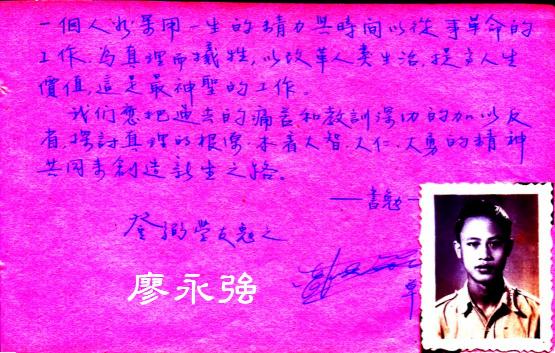 一個人如果用一生的精力與時間以從事革命的
工作，为真理而犧牲，以改革人类生活，提高人生
價值，這是最神聖的工作。
我们應把過去的痛苦和教訓深切的加以反
省，探討真理的根源，本着大智、大仁、大勇的精神
共同来創造新生之路。
——書勉—
學友勉之
廖永强